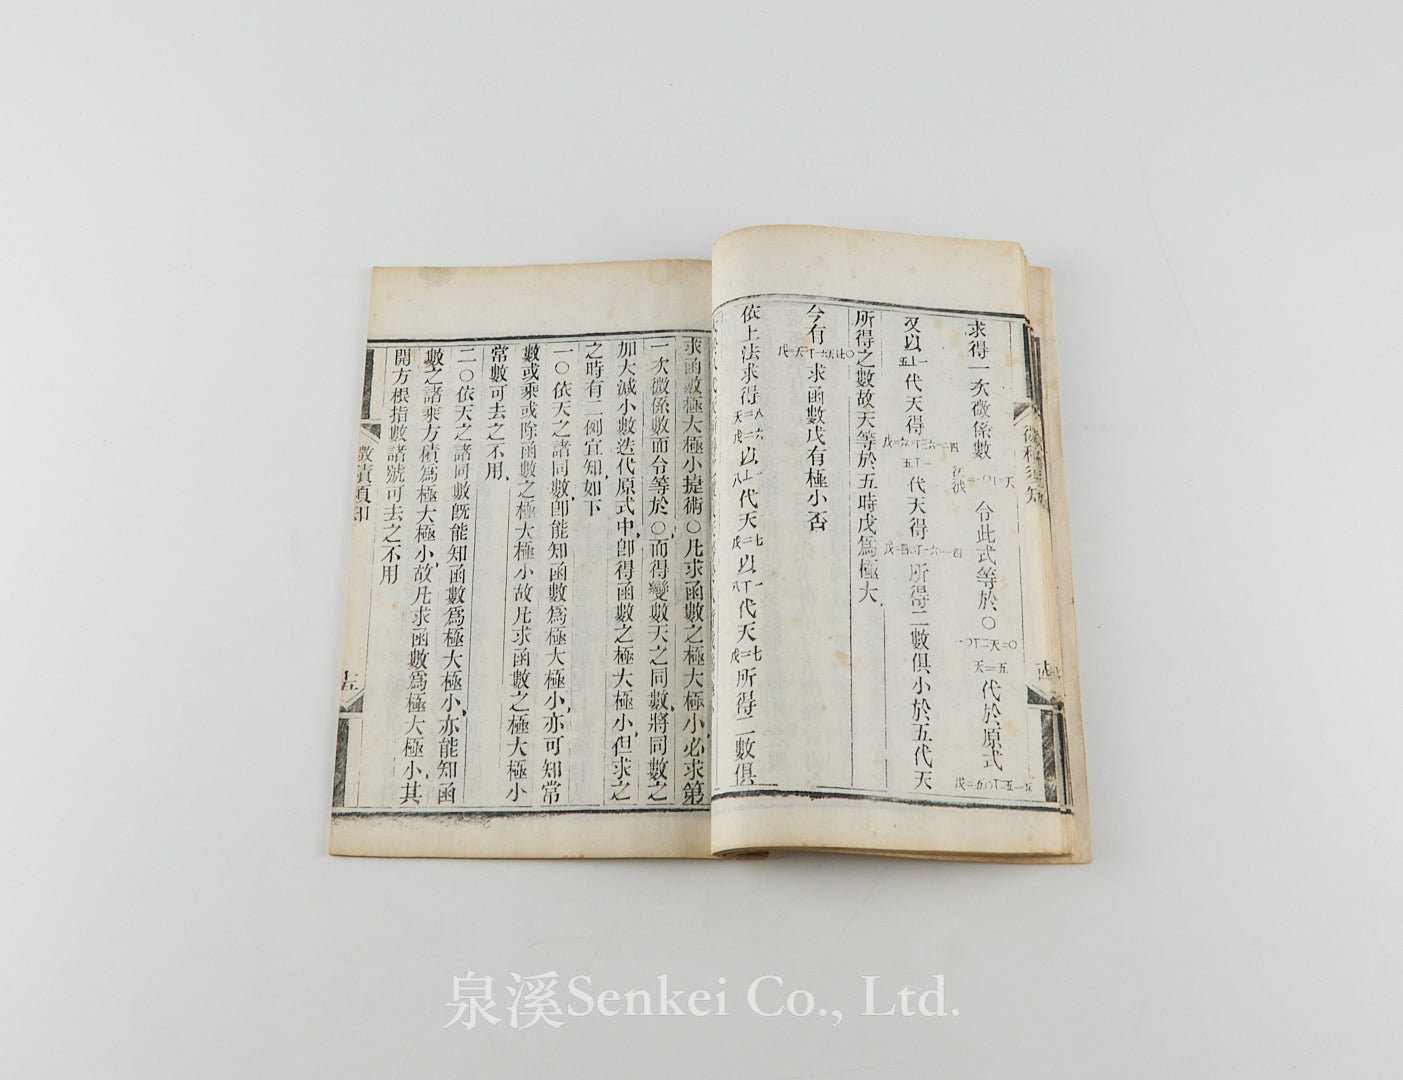 求得一次微係數
令此式等於〇
代於原式
又以
代天得
代天得
所得二數俱小於五代天
所得之數故天等於五時戊爲極大
今有
求函數戊有極小否
依上法求得
以
代天
以
代天
所得二數俱
求函數極大極小捷術〇凡求函數之極大極小必求第
一次微係數而令等於〇而得變數天之同數將同數之
加大減小數迭代原式中卽得函數之極大極小但求之
之時有二例宜知如下
一〇依天之諸同數卽能知函數爲極大極小亦可知常
數或乘或除函數之極大極小故凡求函數之極大極小
常數可去之不用
二〇依天之諸同數旣能知函數爲極大極小亦能知函
數之諸乘方積爲極大極小故凡求函數爲極大極小其
開方根指數諸號可去之不用
微積須知
十五
泉溪Senkei Co., Ltd.